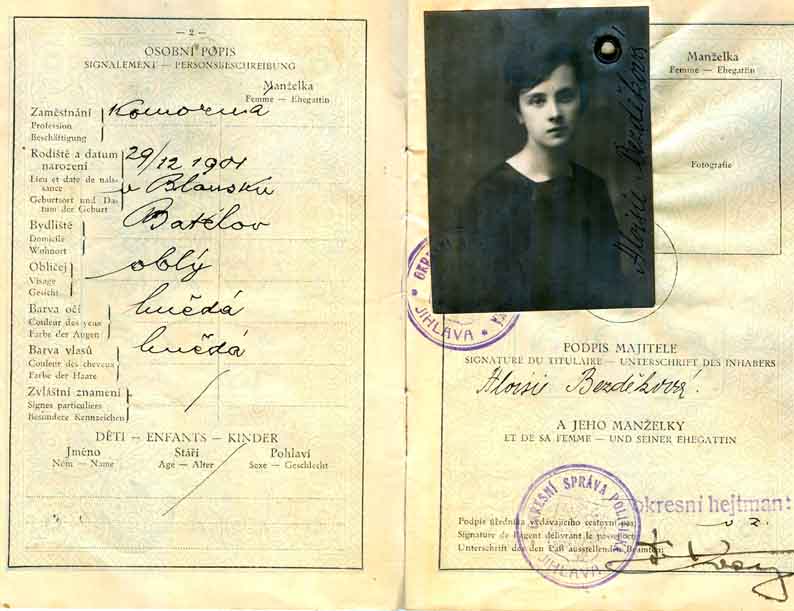 — 2 —
OSOBNÍ POPIS
SIGNALEMENT — PERSONSBESCHREIBUNG
Manželka
Femme — Ehegattin
Zaměstnání
Profession
Beschäftigung
Komorná
Rodiště a datum
narození
Lieu et date de nais-
sance
Geburtsort und Da-
tum der Geburt
29/12 1901
v Blansku
Bydliště
Domicile
Wohnort
Batelov
Obličej
Visage
Gesicht
oblý
Barva očí
Couleur des yeux
Farbe der Augen
hnědá
Barva vlasů
Couleur des cheveux
Farbe der Haare
hnědá
Zvláštní znamení
Signes particuliers
Besondere Kennzeichen
DĚTI — ENFANTS — KINDER
Jméno Stáří Pohlaví
Nom — Name Age — Alter Sexe — Geschlecht
Aloisie Bezděková
Manželka
Femme — Ehegattin
Fotografie
JIHLAVA
PODPIS MAJITELE
SIGNATURE DU TITULAIRE — UNTERSCHRIFT DES INHABERS
Aloisie Bezděková
A JEHO MANŽELKY
ET DE SA FEMME — UND SEINER EHEGATTIN
OKRESNÍ SPRÁVA POLITICKÁ
JIHLAVA
okresní hejtman:
Podpis úředníka vydávajícího cestovní pas
Signature de l'agent délivrant le passeport
Unterschrift des den Paß ausstellenden Beamten